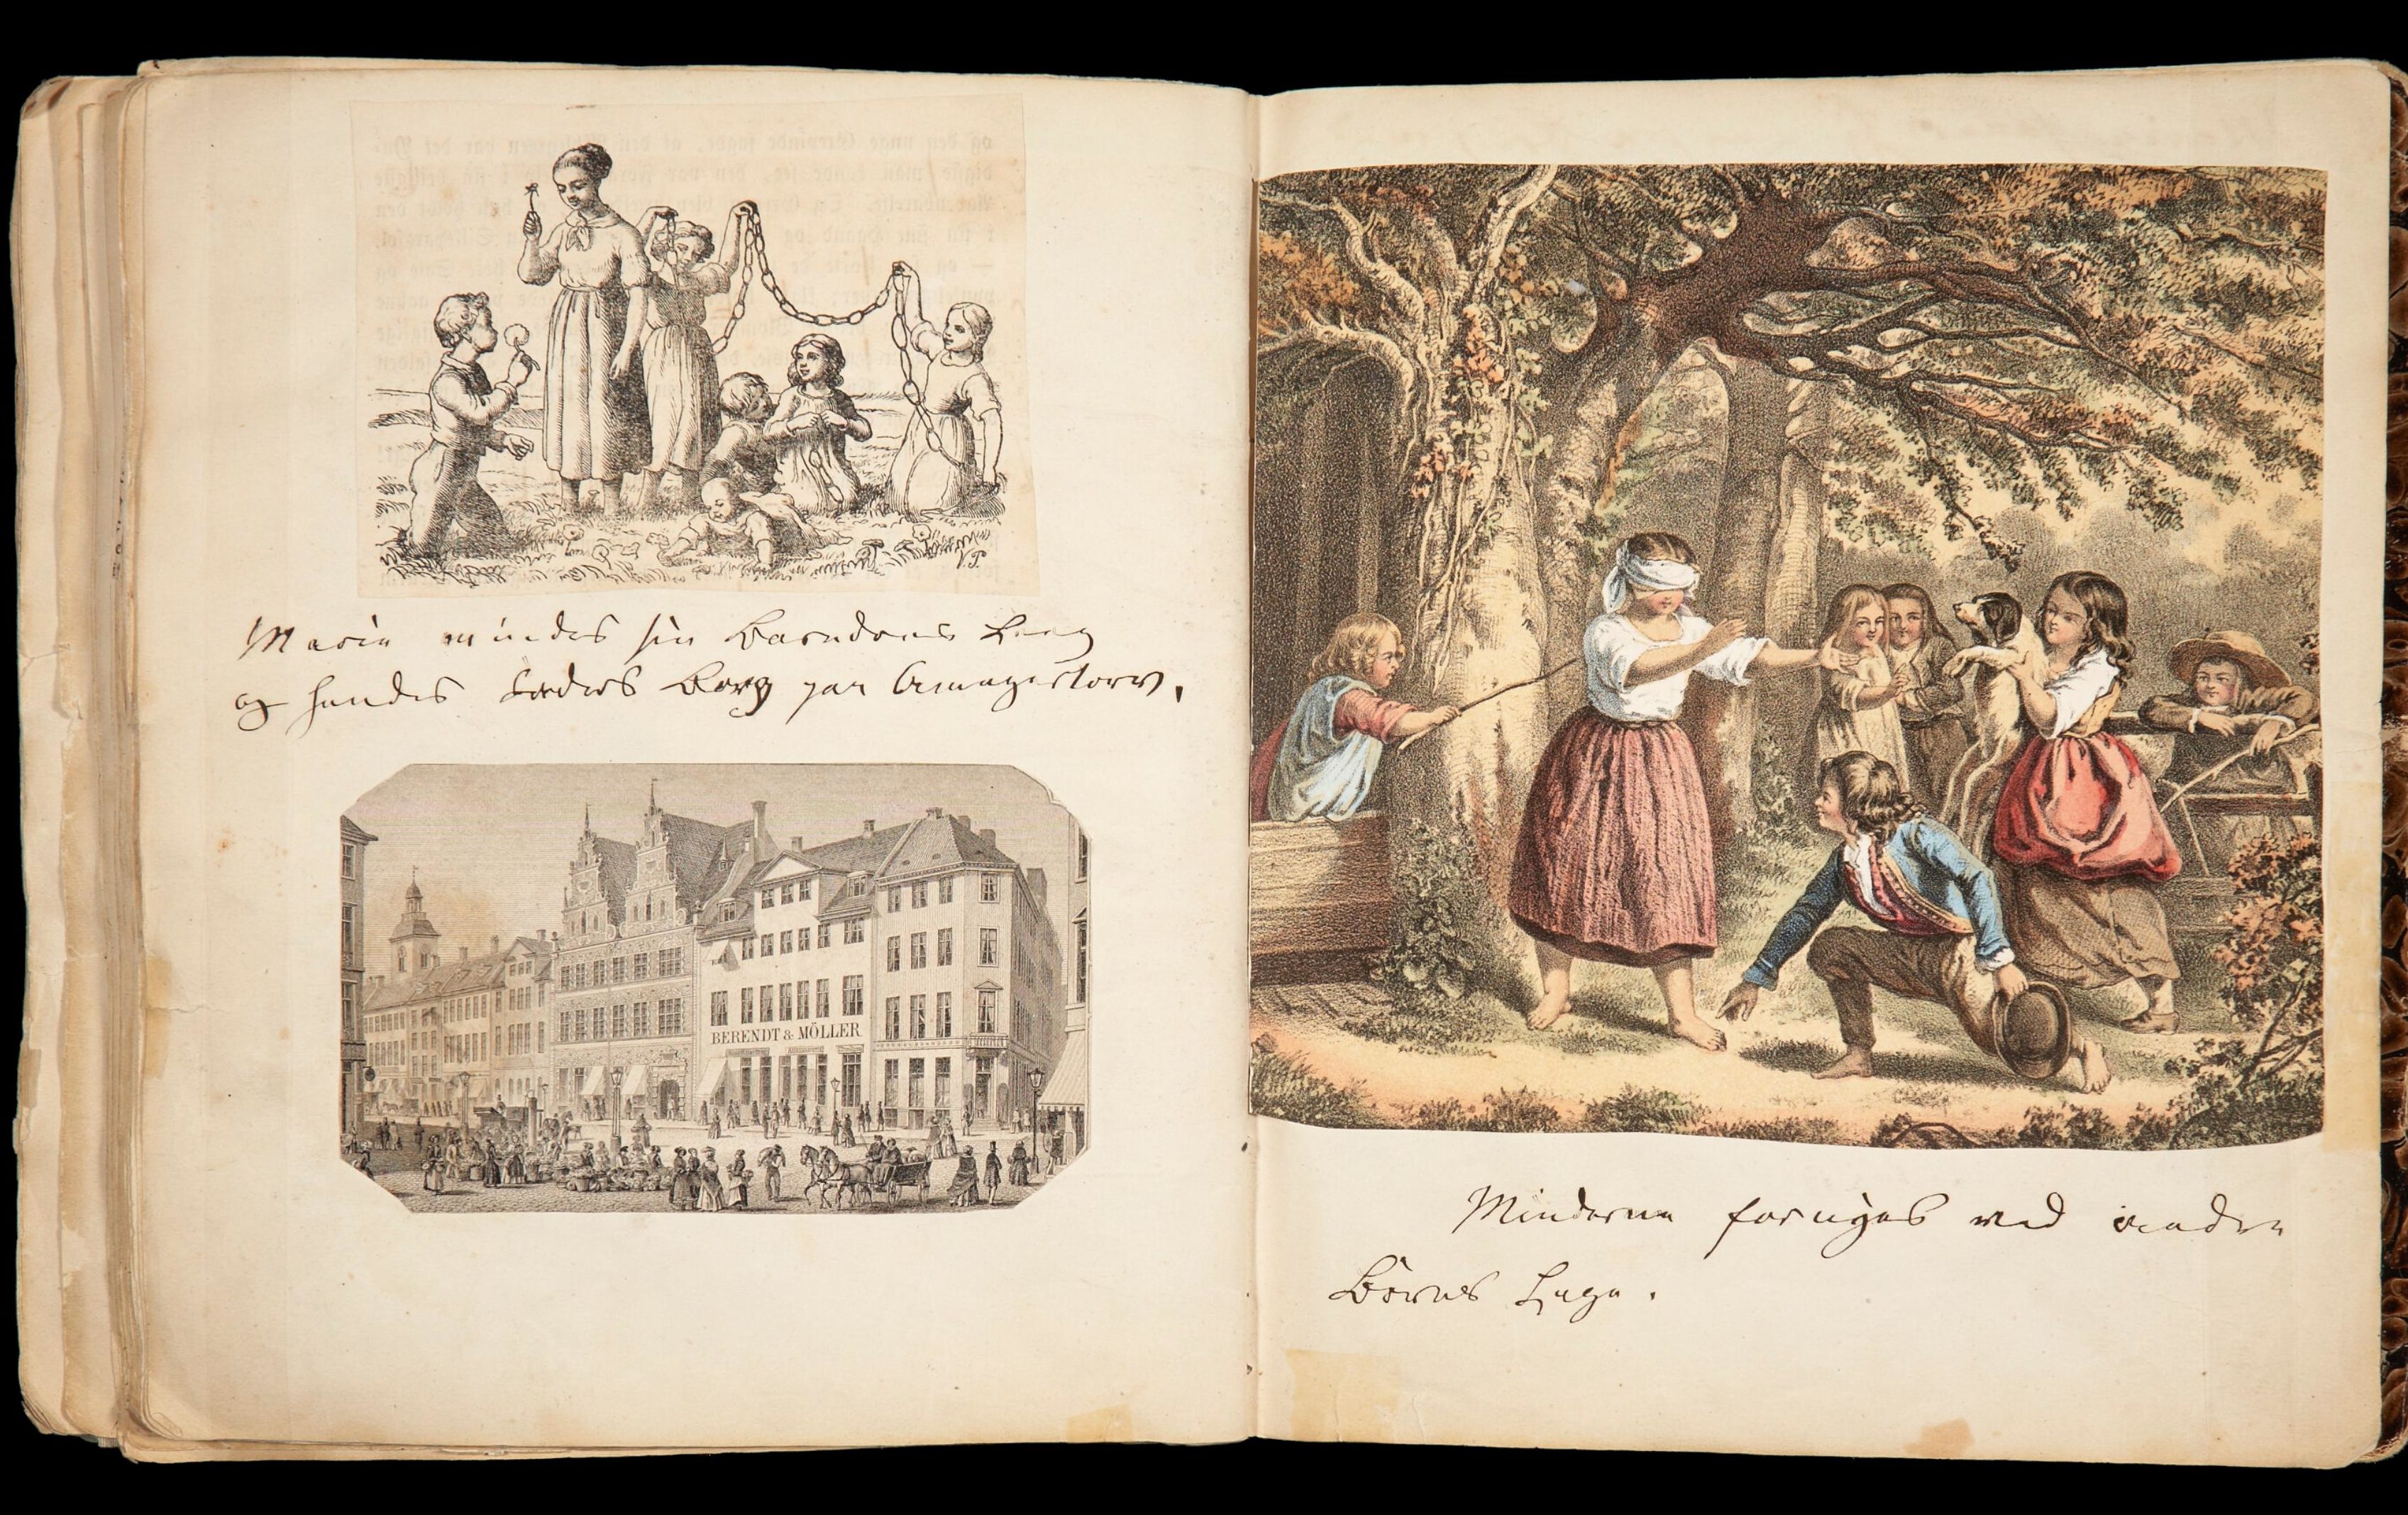 V.P.
Maria mindes sin Barndoms Leeg
og hendes Fædres Borg paa Amagertorv.
BERENDT & MÖLLER
Minderne fornyes ved andre
Börns Lege.